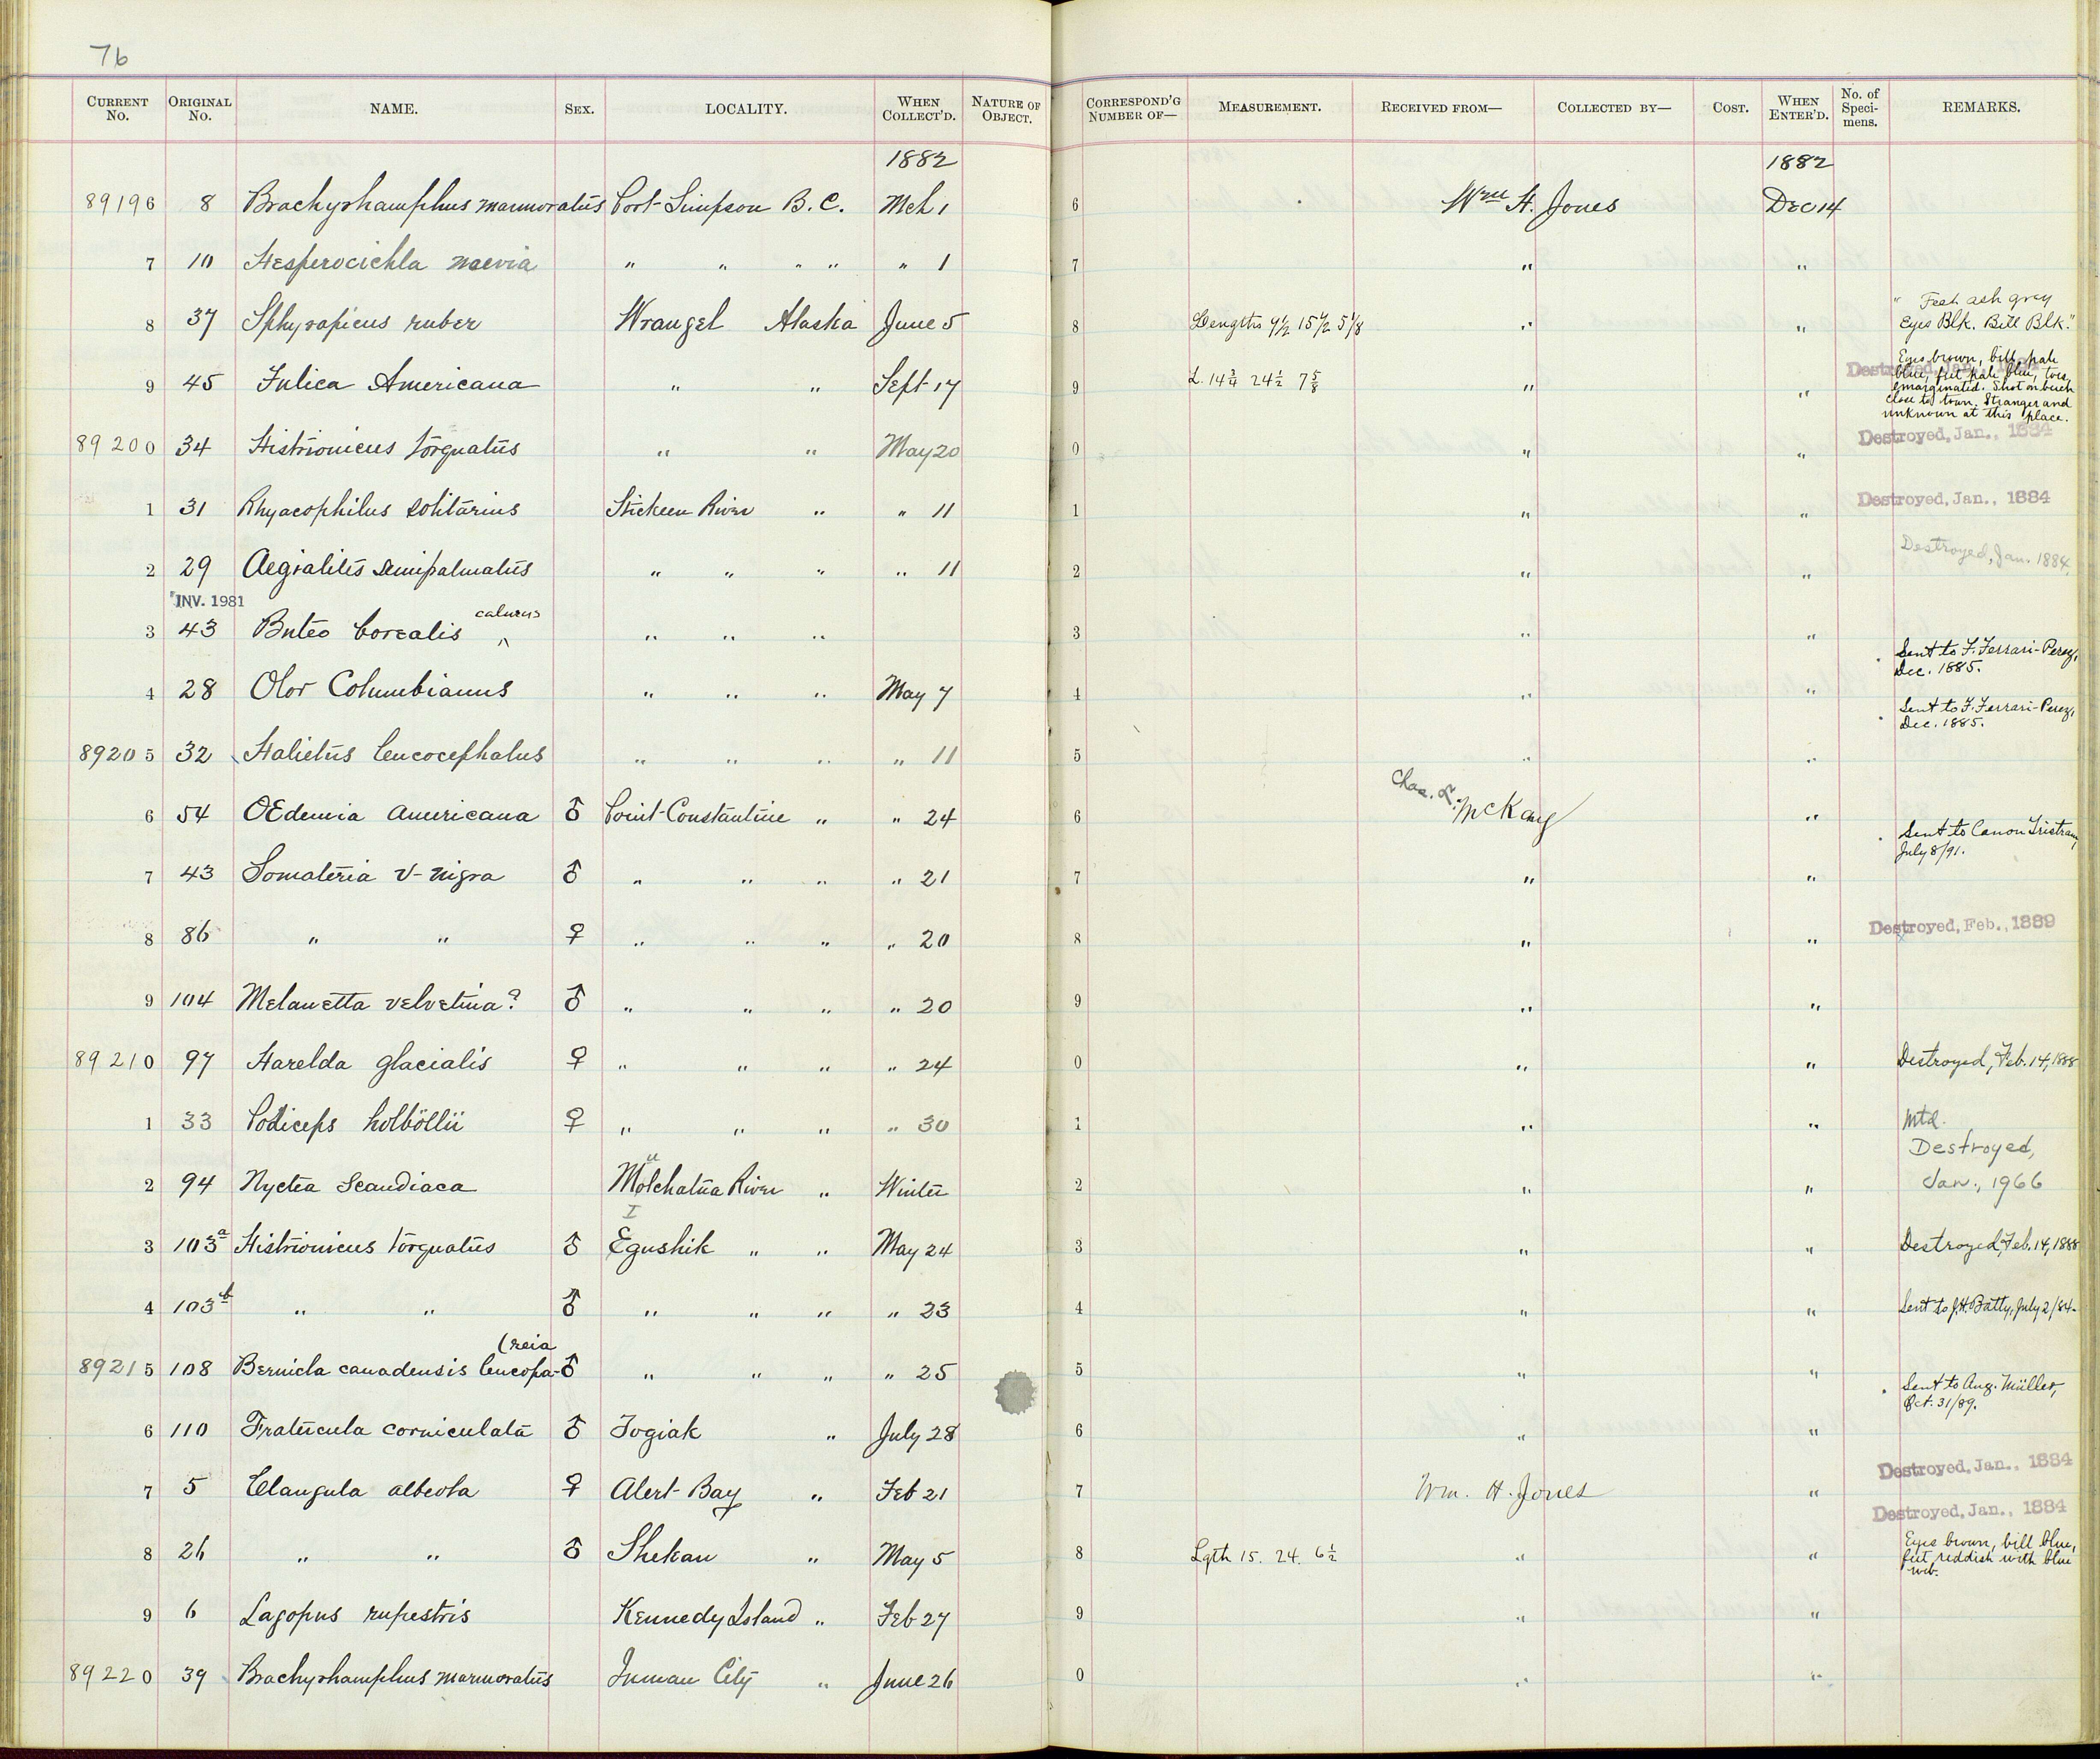 76
CURRENT No. ORIGINAL No. NAME. SEX. LOCALITY. WHEN COLLECT'D. NATURE OF OBJECT. CORRESPOND'G NUMBER OF— MEASUREMENT. RECEIVED FROM— COLLECTED BY— COST. WHEN ENTER'D. No. of Specimens. REMARKS.
1882 1882
89196 8 Brachyrhamphus marmoratus Port Simpson B.C. Mch 1 6 Wm H. Jones Dec 14
7 10 Hesperocichla naevia " " " " " 1 7 " "
8 37 Sphyrapicus ruber Wrangel Alaska June 5 8 Lengths 9½ 15½ 5⅛ " " " Feet ash grey
Eyes Blk. Bill Blk."
9 45 Fulica Americana " " Sept 17 9 L. 14¾ 24½ 7⅝ " " Destroyed, Jan., 1884
Eyes brown, bill pale
blue, feet pale blue, toes
emarginated. Shot on beach
close to town. Stranger and
unknown at this place.
89200 34 Histrionicus torquatus " " May 20 0 " " Destroyed, Jan., 1884
1 31 Rhyacophilus solitarius Stickeen River " " 11 1 " " Destroyed, Jan., 1884
2 29 Aegialitis semipalmatus " " " " 11 2 " " Destroyed, Jan. 1884.
INV. 1981
3 43 Buteo borealis ^ calurus " " " 3 " "
4 28 Olor Columbianus " " " May 7 4 " " Sent to F. Ferrari-Perez,
Dec. 1885.
89205 32 Halietus leucocephalus " " " " 11 5 " " Sent to F. Ferrari-Perez,
Dec. 1885.
6 54 OEdemia americana ♂ Point Constantine " " 24 6 Chas. L. McKay "
7 43 Somateria v-nigra ♂ " " " " 21 7 " " Sent to Canon Tristram,
July 8/91.
8 86 " " ♀ " " " " 20 8 " " Destroyed, Feb., 1889
9 104 Melanetta velvetina? ♂ " " " " 20 9 " "
89210 97 Harelda glacialis ♀ " " " " 24 0 " " Destroyed, Feb. 14, 1888
1 33 Podiceps holböllii ♀ " " " " 30 1 " " Mtd.
Destroyed,
Jan., 1966
2 94 Nyctea scandiaca Molchatna River " Winter 2 " "
u
I
3 103a Histrionicus torquatus ♂ Egushik " " May 24 3 " " Destroyed, Feb. 14, 1888
4 103b " " ♂ " " " " 23 4 " " Sent to J.H. Batty, July 2/84.
89215 108 Bernicla canadensis leucopa- (reia ♂ " " " " 25 5 " "
6 110 Fratercula corniculata ♂ Togiak " July 28 6 " " Sent to Aug. Müller,
Oct. 31/89.
7 5 Clangula albeola ♀ Alert Bay " Feb 21 7 Wm. H. Jones " Destroyed, Jan., 1884
8 26 " " ♂ Shekan " May 5 8 Lgth 15. 24. 6½ " " Destroyed, Jan., 1884
Eyes brown, bill blue,
feet reddish with blue
web.
9 6 Lagopus rupestris Kennedy Island " Feb 27 9 " "
89220 39 Brachyrhamphus marmoratus Inman City " June 26 0 " "